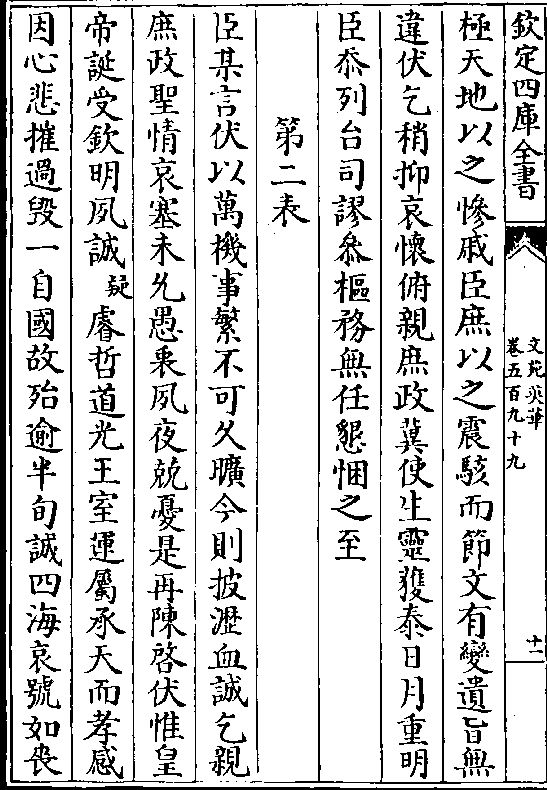 欽定四庫全書
文苑英華
卷五百九十九
十一
極天地以之慘戚臣庶以之震駭而節文有變遺旨無
違伏乞稍抑哀懷俯親庶政冀使生靈獲泰日月重明
臣忝列台司謬叅樞務無任懇悃之至
第二表
臣某言伏以萬機事繁不可久曠今則披瀝血誠乞親
庶政聖情哀塞未允愚衷夙夜兢憂是再陳啓伏惟皇
帝誕受欽明夙誠疑睿哲道光王室運屬承天而孝感
因心悲摧過毁一自國故殆逾半旬誠四海哀號如喪